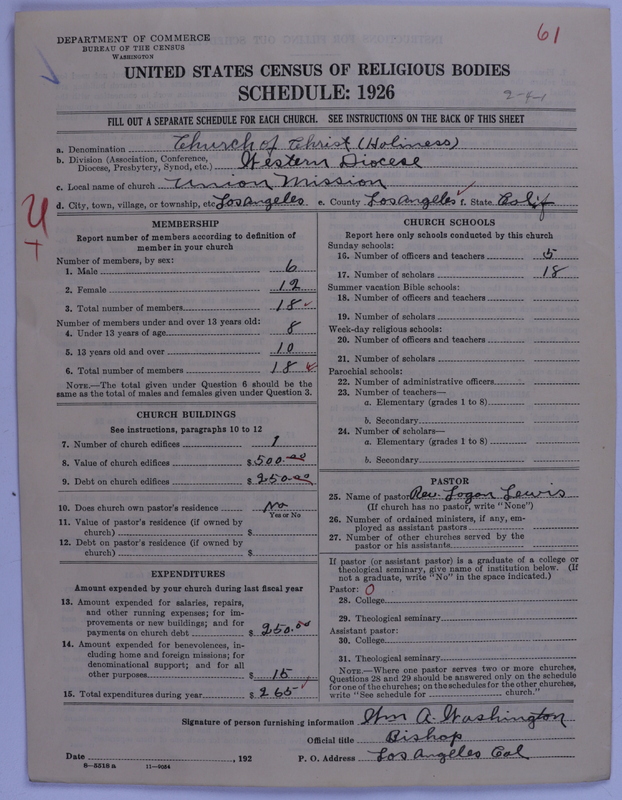 61
DEPARTMENT OF COMMERCE
BUREAU OF THE CENSUS
WASHINGTON
UNITED STATES CENSUS OF RELIGIOUS BODIES
SCHEDULE: 1926
FILL OUT A SEPARATE SCHEDULE FOR EACH CHURCH. SEE INSTRUCTIONS ON THE BACK OF THIS SHEET
a. Denomination Church of Christ (Holiness)
b. Division (Association, Conference, Diocese, Presbytery, Synod, etc.) Western Diocese
c. Local name of church Union Mission
d. City, town, village, or township, etc. Los Angeles e. County Los Angeles f. State Calif
MEMBERSHIP
Report number of members according to definition of
member in your church
Number of members, by sex:
1. Male 6
2. Female 12
3. Total number of members 18
Number of members under and over 13 years old:
4. Under 13 years of age 8
5. 13 years old and over 10
6. Total number of members 18
NOTE.—The total given under Question 6 should be the
same as the total of males and females given under Question 3.
CHURCH BUILDINGS
See instructions, paragraphs 10 to 12
7. Number of church edifices 1
8. Value of church edifices $500.00
9. Debt on church edifices $250.00
10. Does church own pastor's residence No
Yes or No
11. Value of pastor's residence (if owned by
church) $
12. Debt on pastor's residence (if owned by
church) $
EXPENDITURES
Amount expended by your church during last fiscal year
13. Amount expended for salaries, repairs,
and other running expenses; for im-
provements or new buildings; and for
payments on church debt $250.00
14. Amount expended for benevolences, in-
cluding home and foreign missions; for
denominational support; and for all
other purposes $15
15. Total expenditures during year $265
CHURCH SCHOOLS
Report here only schools conducted by this church
Sunday schools:
16. Number of officers and teachers 5
17. Number of scholars 18
Summer vacation Bible schools:
18. Number of officers and teachers
19. Number of scholars
Week-day religious schools:
20. Number of officers and teachers
21. Number of scholars
Parochial schools:
22. Number of administrative officers
23. Number of teachers—
a. Elementary (grades 1 to 8)
b. Secondary
24. Number of scholars—
a. Elementary (grades 1 to 8)
b. Secondary
PASTOR
25. Name of pastor Rev. Logan Lewis
(If church has no pastor, write "None")
26. Number of ordained ministers, if any, em-
ployed as assistant pastors
27. Number of other churches served by the
pastor or his assistants
If pastor (or assistant pastor) is a graduate of a college or
theological seminary, give name of institution below. (If
not a graduate, write "No" in the space indicated.)
Pastor: 0
28. College
29. Theological seminary
Assistant pastor:
30. College
31. Theological seminary
NOTE.—Where one pastor serves two or more churches,
Questions 28 and 29 should be answered only on the schedule
for one of the churches; on the schedules for the other churches,
write "See schedule for church."
Signature of person furnishing information Wm A. Washington
Official title Bishop
Date , 192 P. O. Address Los Angeles Cal
8—5518 a 11—9084